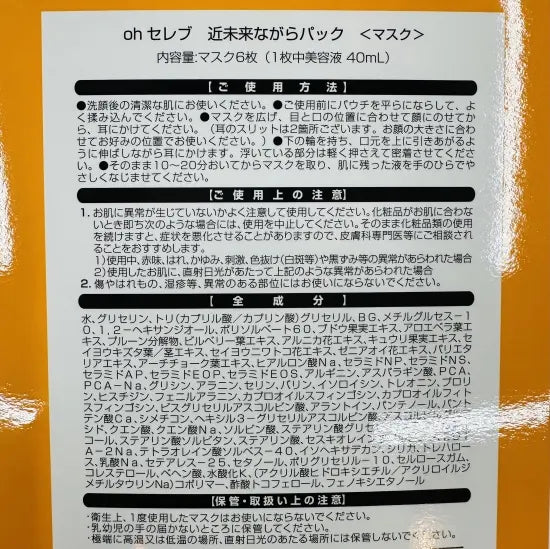 oh セレブ 近未来ながらパック <マスク>
内容量:マスク6枚(1枚中美容液 40mL)
【ご使用方法】
●洗顔後の清潔な肌にお使いください。●ご使用前にパウチを平らにならして、よ
く揉み込んでください。●マスクを広げ、目と口の位置に合わせて顔にのせてか
ら、耳にかけてください。(耳のスリットは2箇所ございます。お顔の大きさに合わ
せてお好みの位置でお使いください。)●下の輪を持ち、口元を上に引きあがるよ
うに伸ばしながら耳にかけます。浮いている部分は軽く押さえて密着させてくださ
い。●そのまま10~20分おいてからマスクを取り、肌に残った液を手のひらでや
さしくなじませてください。
【ご使用上の注意】
1. お肌に異常が生じていないかよく注意して使用してください。化粧品がお肌に合わな
いとき即ち次のような場合には、使用を中止してください。そのまま化粧品類の使用
を続けますと、症状を悪化させることがありますので、皮膚科専門医等にご相談され
ることをおすすめします。
1)使用中、赤味、はれ、かゆみ、刺激、色抜け(白斑等)や黒ずみ等の異常があらわれた場合
2)使用したお肌に、直射日光があたって上記のような異常があらわれた場合
2. 傷やはれもの、湿疹等、異常のある部位にはお使いにならないでください。
【全成分】
水、グリセリン、トリ(カプリル酸/カプリン酸)グリセリル、BG、メチルグルセス-1
0、1,2-ヘキサンジオール、ポリソルベート60、ブドウ果実エキス、アロエベラ葉エ
キス、プルーン分解物、ビルベリー葉エキス、アルニカ花エキス、キュウリ果実エキス、セ
イヨウキズタ葉/茎エキス、セイヨウニワトコ花エキス、ゼニアオイ花エキス、パリエタ
リアエキス、アーチチョーク葉エキス、ヒアルロン酸Na、セラミドNP、セラミドNS、
セラミドAP、セラミドEOP、セラミドEOS、アルギニン、アスパラギン酸、PCA、
PCA-Na、グリシン、アラニン、セリン、バリン、イソロイシン、トレオニン、プロリ
ン、ヒスチジン、フェニルアラニン、カプロオイルスフィンゴシン、カプロオイルフィト
スフィンゴシン、ビスグリセリルアスコルビン酸、アラントイン、パンテノール、パント
テン酸Ca、シメチコン、ヘキシル3-グリセリルアスコルビン酸、
シド、クエン酸、クエン酸Na、ソルビタン、ステアリン酸グリ
コール、ステアリン酸ソルビタン、ステアリン酸、セスキオレイ
A-2Na、テトラオレイン酸ソルベス-40、イソヘキサデカン、シリカ、トレハロー
ス、乳酸Na、セテアレス-25、セタノール、ポリグリセリル-10、セルロースガム、
コレステロール、ベヘン酸、水酸化K、(アクリル酸ヒドロキシエチル/アクリロイルジ
メチルタウリンNa)コポリマー、酢酸トコフェロール、フェノキシエタノール
【保管・取扱い上の注意】
・衛生上、1度使用したマスクはお使いにならないでください。
・乳幼児の手の届かないところに保管してください。
・極端に高温又は低温の場所、直射日光のあたる場所には保管しないでください。